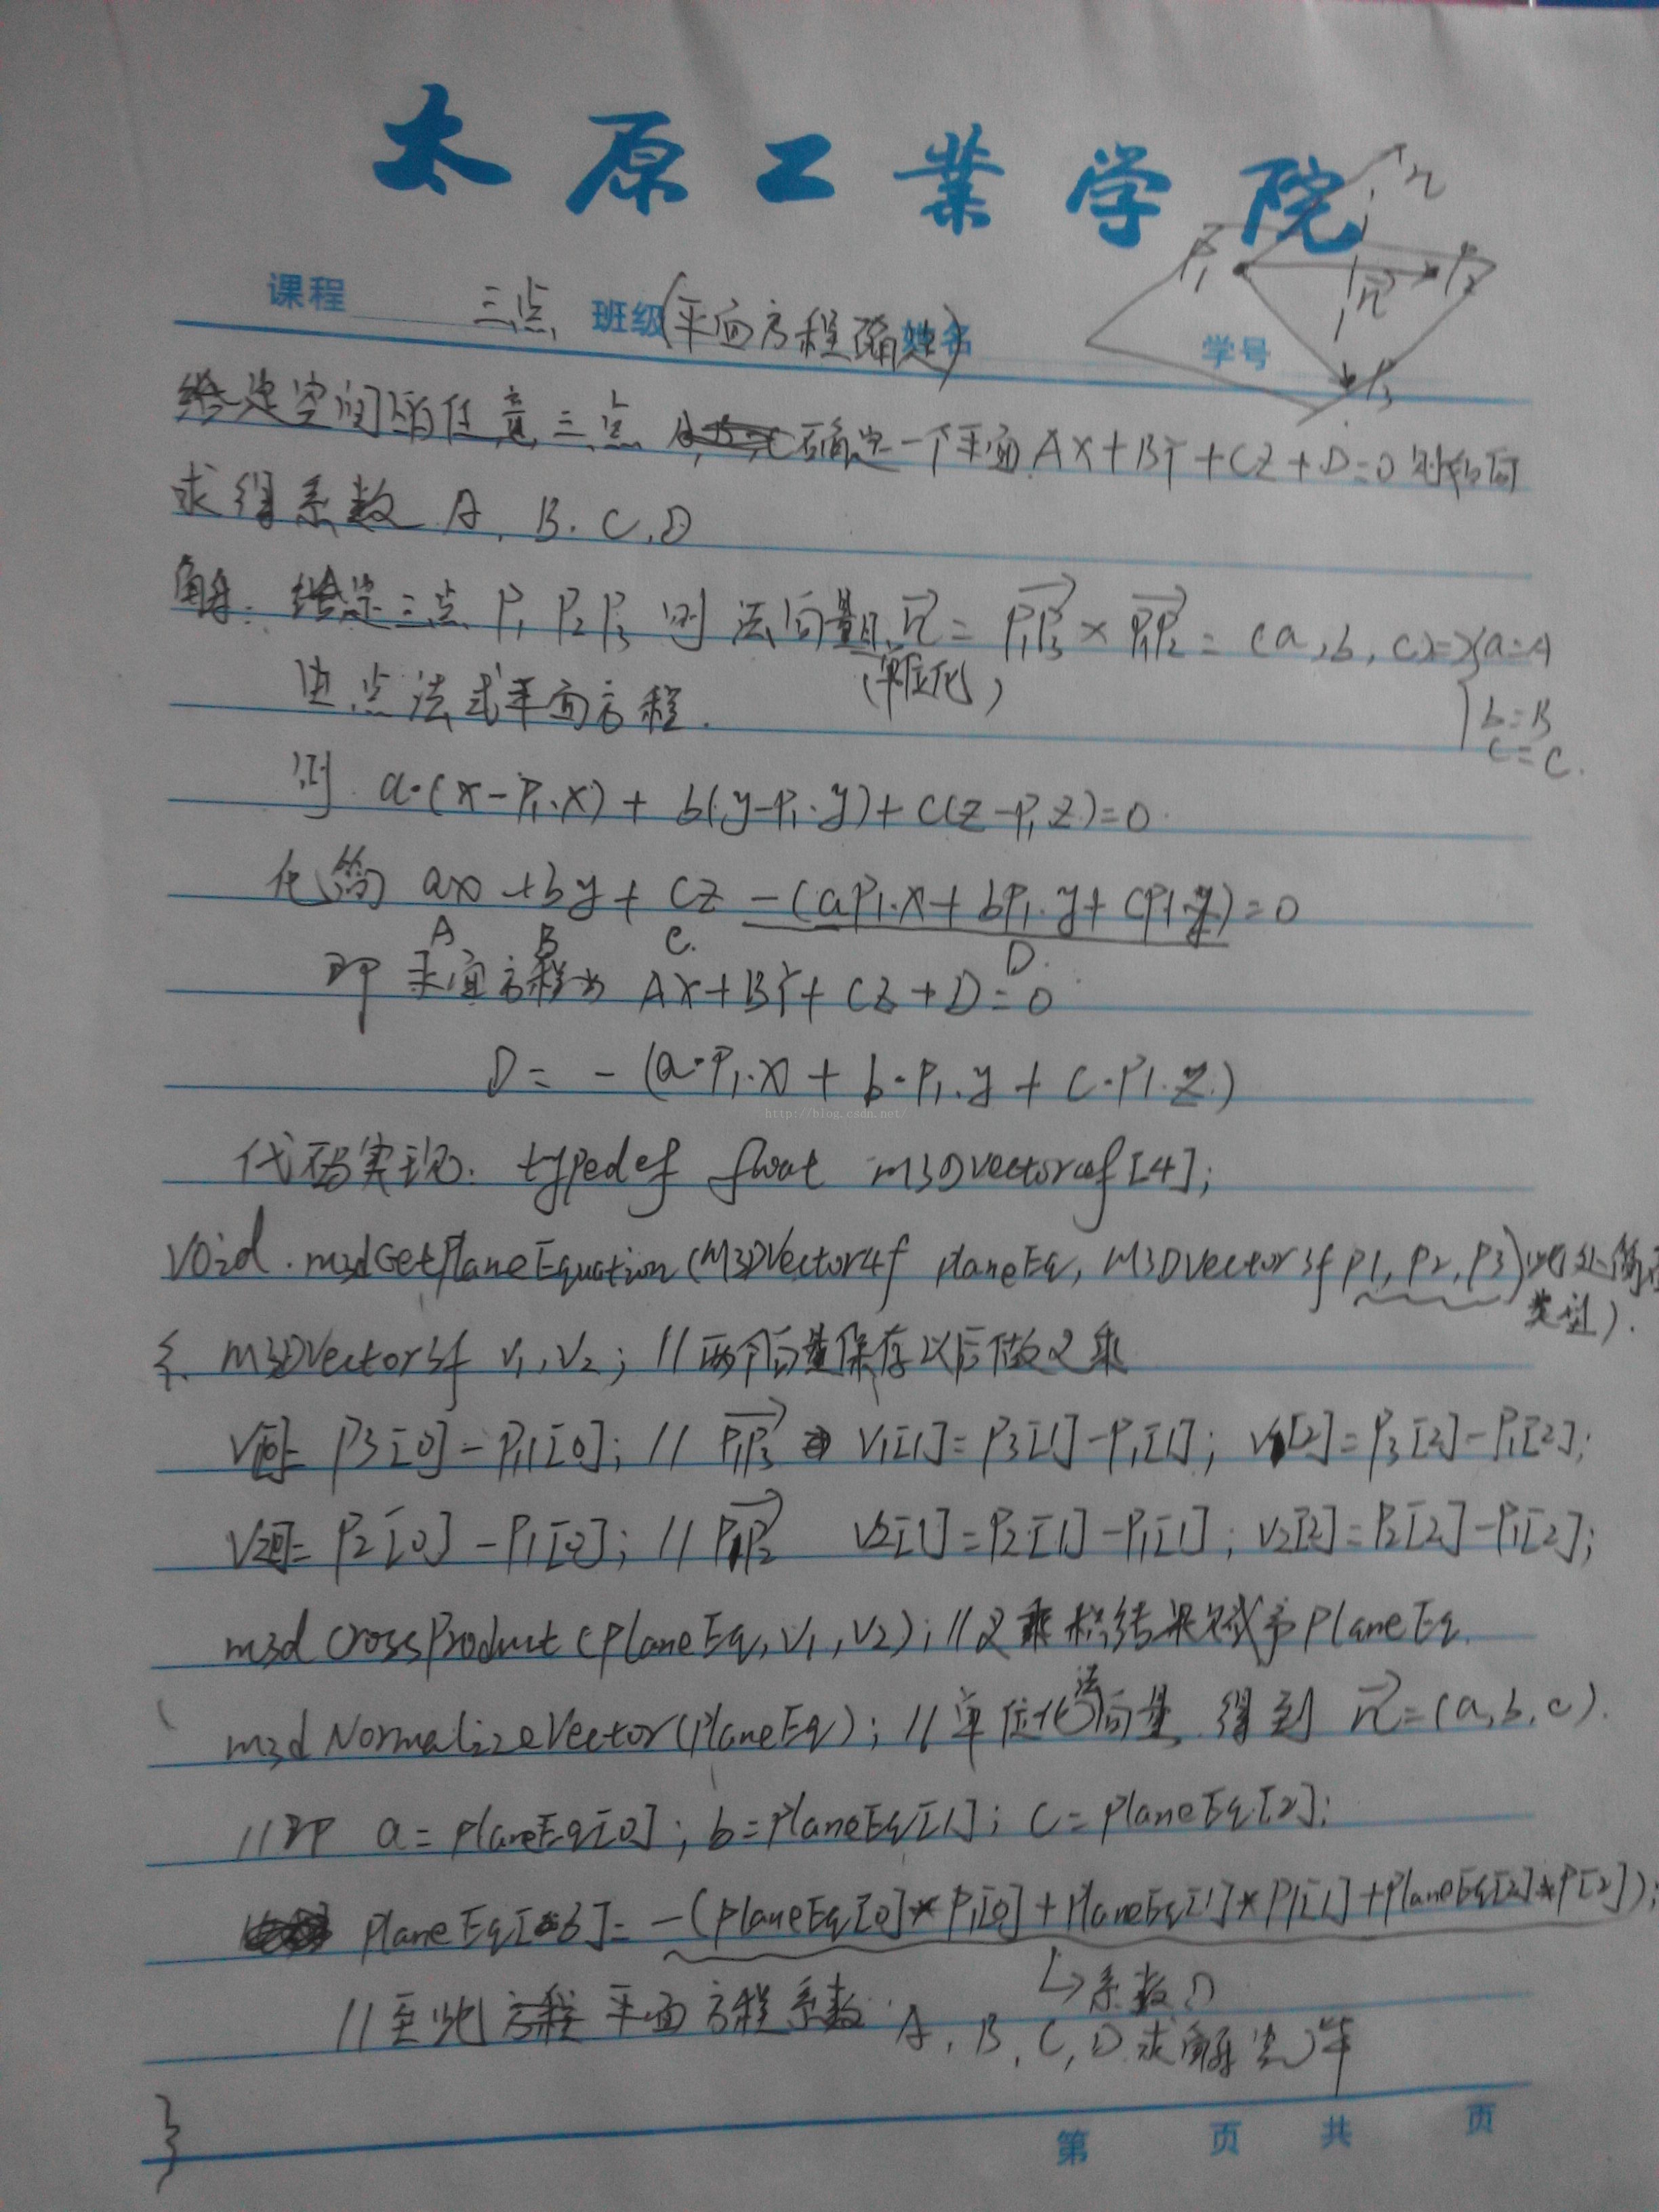 太原工業学院
n
P1 P2
n
P3
课程 班级 姓名 学号
三点(平面方程确定)
给定空间的任意三点 确定一个平面 AX+BY+CZ+D=0 则如何
求得系数 A, B. C, D
解: 给定三点 P1 P2 P3 则 法向量 n = P1P3 × P1P2 = (a, b, c) => {a=A
(单位化)
b=B
c=C.
由点法式平面方程.
则 a·(x-P1.x) + b(y-P1.y) + c(z-P1.z)=0
化简 ax+by+cz -(aP1.x+bP1.y+cP1.z)=0
A B C. D.
即 平面方程为 AX+BY+CZ+D=0
D= -(a·P1.x + b·P1.y + c·P1.z)
http://blog.csdn.net/
代码实现: typedef float m3DVector4f[4];
void m3dGetPlaneEquation(M3DVector4f planeEq, M3DVector3f p1, p2, p3)
类型).
{ m3DVector3f v1, v2; //两个向量保存以后做叉乘
v1[0]= P3[0]-P1[0]; // P1P3 v1[1]=P3[1]-P1[1]; v1[2]=P3[2]-P1[2];
v2[0]= P2[0]-P1[0]; // P1P2 v2[1]=P2[1]-P1[1]; v2[2]=P2[2]-P1[2];
m3dCrossProduct(planeEq, v1, v2); //叉乘积结果赋予planeEq.
m3dNormalizeVector(planeEq); //单位化法向量 得到 n=(a, b, c).
//即 a=planeEq[0]; b=planeEq[1]; c=planeEq[2];
planeEq[3]= -(planeEq[0]*P1[0]+planeEq[1]*P1[1]+planeEq[2]*P[2]);
系数D
//至此 平面方程系数 A, B, C, D 求解完毕
}
第 页 共 页